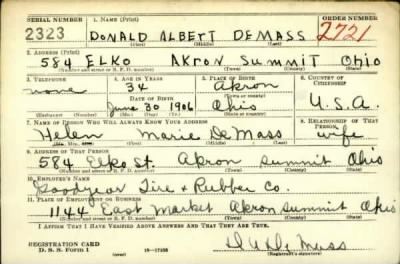 SERIAL NUMBER 1. NAME (Print) ORDER NUMBER
2323 DONALD ALBERT DEMASS 2721
(First) (Middle) (Last)
2. ADDRESS (Print)
584 ELKO AKRON SUMMIT OHIO
(Number and street or R. F. D. number) (Town) (County) (State)
3. TELEPHONE 4. AGE IN YEARS 5. PLACE OF BIRTH 6. COUNTRY OF CITIZENSHIP
none 34 Akron
DATE OF BIRTH (Town or county)
June 30 1906 Ohio U.S.A.
(Exchange) (No.) (Mo.) (Day) (Yr.) (State or country)
7. NAME OF PERSON WHO WILL ALWAYS KNOW YOUR ADDRESS 8. RELATIONSHIP OF THAT PERSON
Helen Marie DeMass wife
(Mr., Mrs., Miss) (First) (Middle) (Last)
9. ADDRESS OF THAT PERSON
584 Elko St. Akron Summit Ohio
(Number and street or R. F. D. number) (Town) (County) (State)
10. EMPLOYER'S NAME
Goodyear Tire & Rubber Co.
11. PLACE OF EMPLOYMENT OR BUSINESS
1144 East Market Akron, Summit Ohio
(Number and street or R. F. D. number) (Town) (County) (State)
I AFFIRM THAT I HAVE VERIFIED ABOVE ANSWERS AND THAT THEY ARE TRUE.
REGISTRATION CARD
D. S. S. Form 1 16—17105 (Registrant's signature)